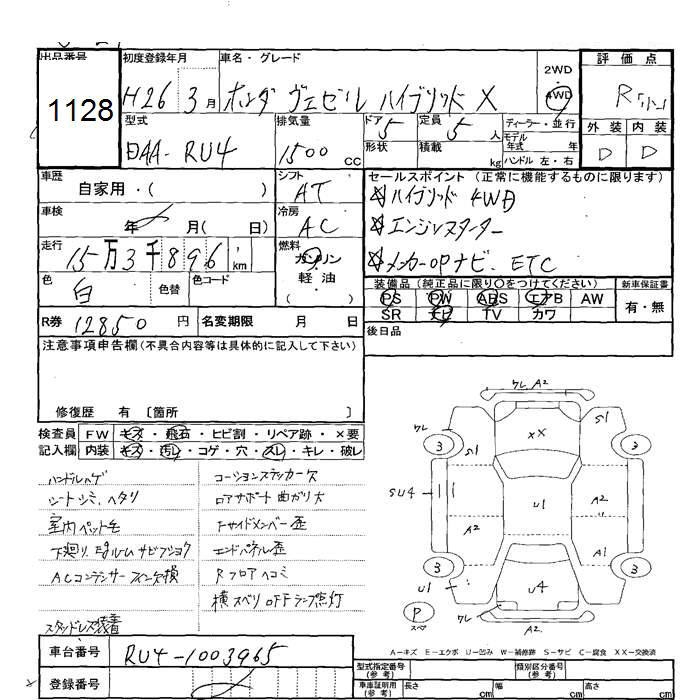 出品番号
1128
初度登録年月
H26 3月
車名・グレード
ホンダ ヴェゼル ハイブリッド X
2WD
4WD
評価点
R
外装 内装
D D
型式
DAA-RU4
排気量
1500 cc
ドア 5
形状
定員 5 人
積載 kg
ディーラー・並行
モデル年式 年
ハンドル 左・右
車歴
自家用・( )
シフト
AT
セールスポイント (正常に機能するものに限ります)
☆ハイブリッド 4WD
☆エンジンスターター
☆メーカーOPナビ. ETC
車検
年 月( 日)
冷房
AC
走行
15万3千896 km
燃料
ガソリン
軽・油
( )
色
白
色替
色コード
装備品 (純正品に限り○をつけてください)
PS PW ABS エアB AW
SR ナビ TV カワ
新車保証書
有・無
R券 12850円
名変期限 月 日
後日品
注意事項申告欄(不具合内容等は具体的に記入して下さい)
修復歴 有 〔箇所 〕
検査員 FW キズ・飛石・ヒビ割・リペア跡・×要
記入欄 内装 キズ・汚レ・コゲ・穴・スレ・キレ・破レ
ハンドルハゲ
シートシミ、ヘタリ
室内ペット毛
下廻り、Egルームサビフショク
ACコンデンサーフィン欠損
スタッドレス装着
コーションステッカー欠
ロアサポート曲ガリ大
Fサイドメンバー歪
エンドパネル歪
Rフロアヘコミ
横スベリOFFランプ点灯
ワレ A2
ワレ
3
S1
XX
S1
3
SU4
U1
A2
A2
A1
3
U1
U4
3
P
スペ
ワレ
A2
A-キズ E-エクボ U-凹み W-補修跡 S-サビ C-腐食 XX-交換済
車台番号
RU4-1003965
登録番号
型式指定番号
(参考)
類別区分番号
(参考)
車庫証明用
(参考)
長さ cm
幅 cm
高さ cm